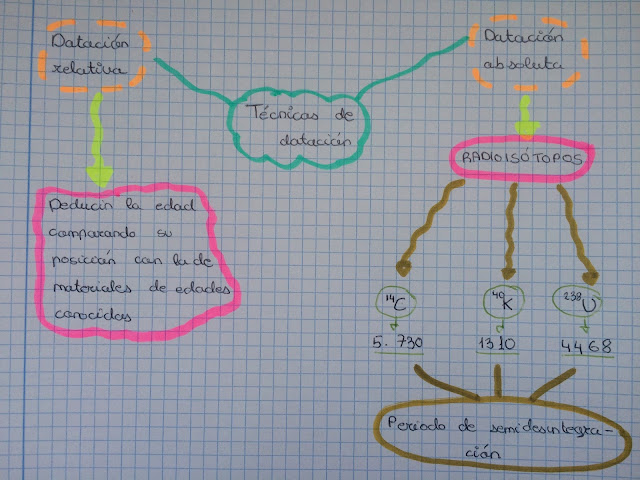 Datación
relativa
Datación
absoluta
Técnicas de
datación
RADIOISÓTOPOS
Deducir la edad
comparando su
posición con la de
materiales de edades
conocidas
¹⁴C
⁴⁰K
²³⁸U
5.730
1310
4468
Periodo de semidesintegra-
ción